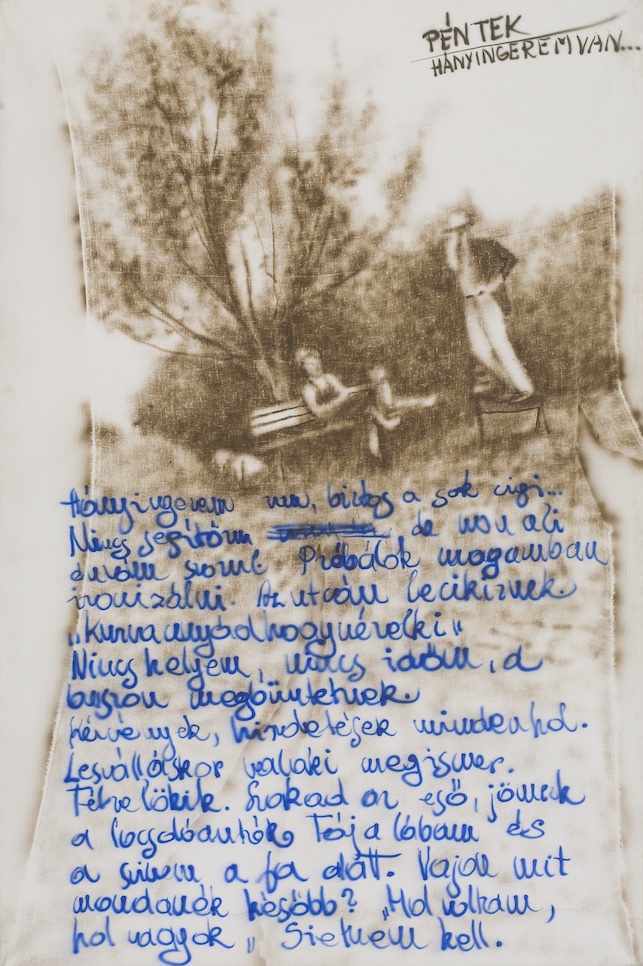 PÉNTEK
HÁNYINGEREM VAN...
Hányingerem van, biztos a sok cigi...
Nincs segítőm de
Próbálok magamban
ironizálni. Az utcán lecikiznek
„Kurva anyád hogy nézel ki"
Nincs helyem, nincs időm, a
buszon megbüntetnek.
Kérvények, hirdetések mindenhol.
Leszálláskor valaki megismer.
Félrelökik. Szakad az eső, jönnek
a locsolóautók Fáj a lábam és
a szívem a fa alatt. Vajon mit
mondanék később? „Hol voltam,
hol vagyok„ Sietnem kell.